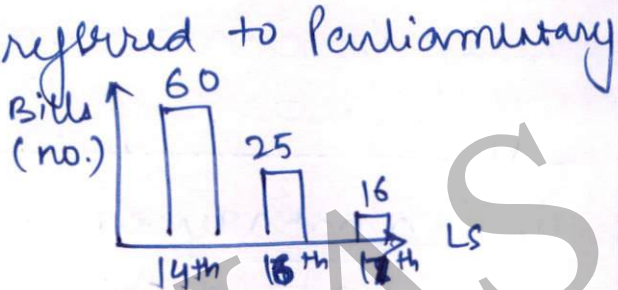 referred to Parliamentary
Bills
(no.)
60
25
16
14th
16th
17th
LS
IAS